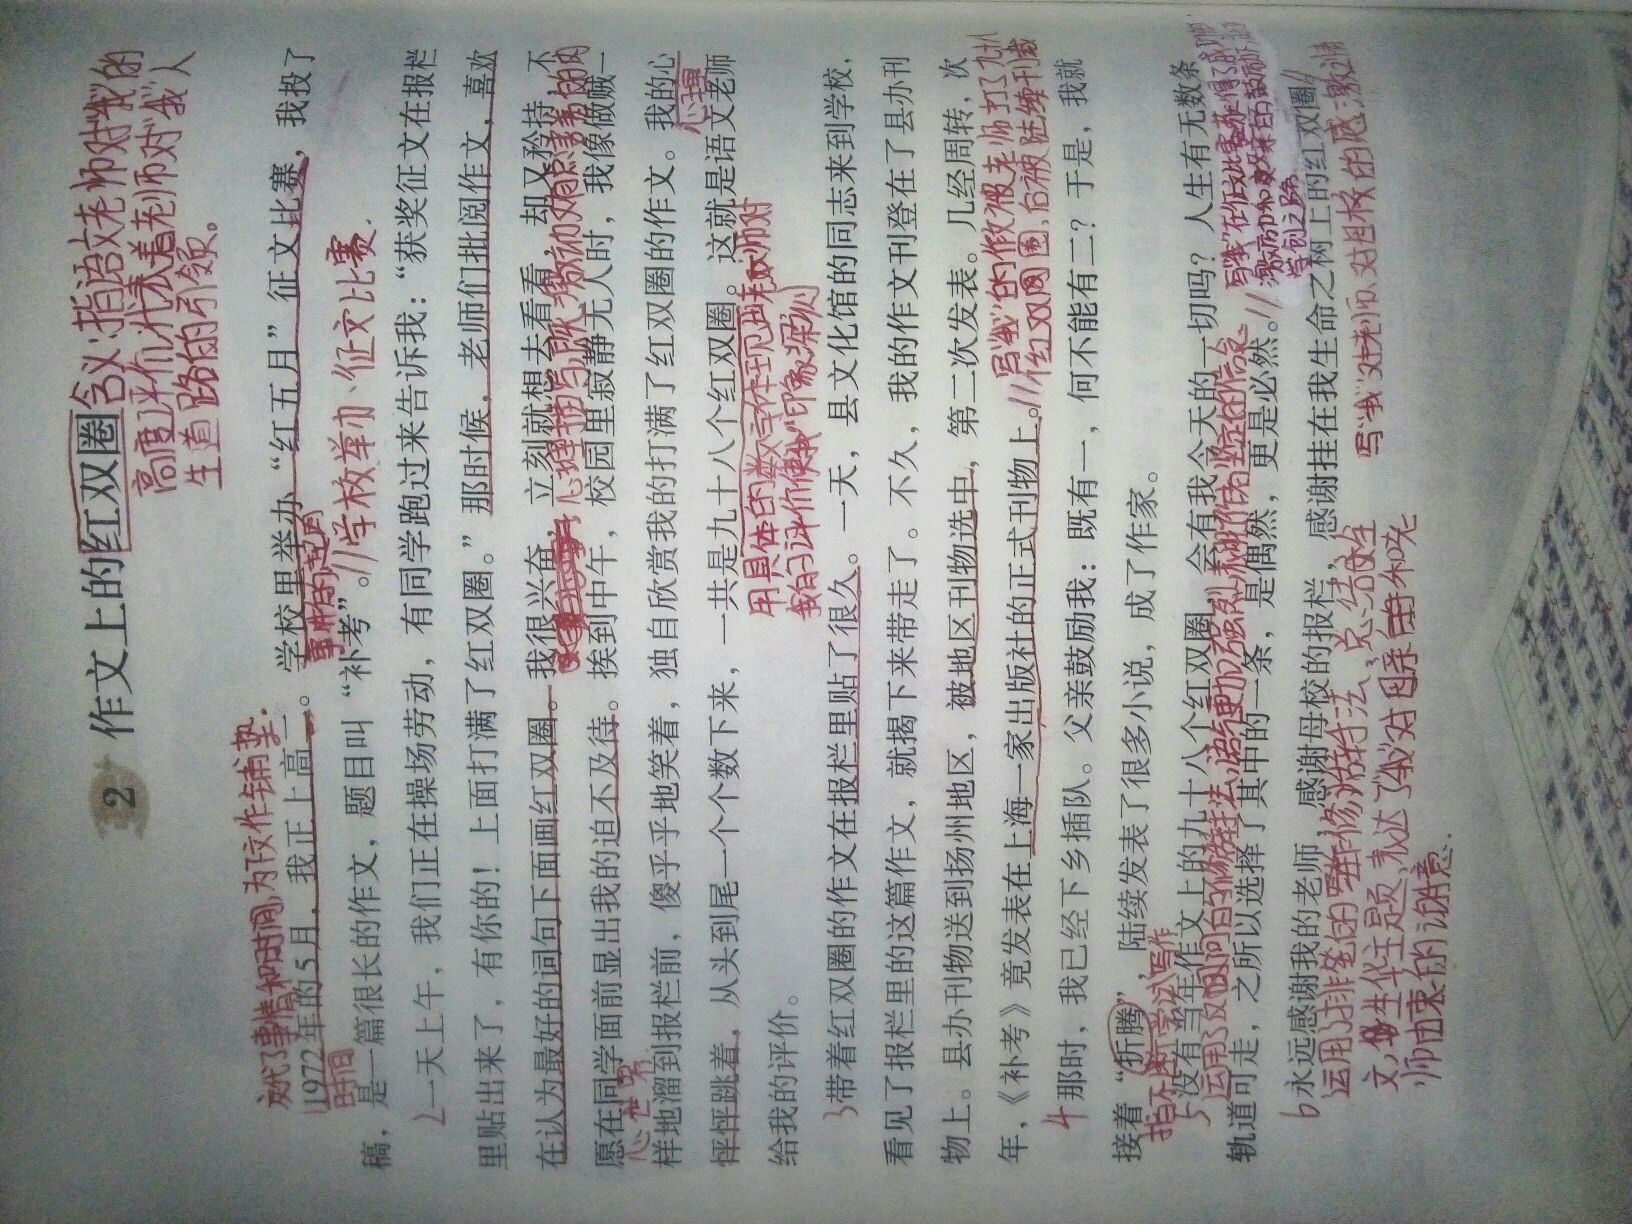 2 作文上的红双圈
含义:指语文老师对“我”的
高度评价,代表着老师对“我”人
生道路的引领。
交代了事情和时间,为下文作铺垫.
1972年的5月，我正上高二。学校里举办“红五月”征文比赛，我投了
时间
事情的起因
稿，是一篇很长的作文，题目叫“补考”。//学校举办“征文比赛.
2一天上午，我们正在操场劳动，有同学跑过来告诉我：“获奖征文在报栏
里贴出来了，有你的！上面打满了红双圈。”那时候，老师们批阅作文，喜欢
在认为最好的词句下面画红双圈。我很兴奋，立刻就想去看看，却又矜持，不
愿在同学面前显出我的迫不及待。挨到中午，校园里寂静无人时，我像做贼一
样地溜到报栏前，傻乎乎地笑着，独自欣赏我的打满了红双圈的作文。我的心
心理
怦怦跳着，从头到尾一个个数下来，一共是九十八个红双圈。这就是语文老师
用具体的数字体现出老师对
我的评价使“我”印象深刻
给我的评价。
3带着红双圈的作文在报栏里贴了很久。一天，县文化馆的同志来到学校，
看见了报栏里的这篇作文，就揭下来带走了。不久，我的作文刊登在了县办刊
物上。县办刊物送到扬州地区，被地区刊物选中，第二次发表。几经周转，次
年，《补考》竟发表在上海一家出版社的正式刊物上。//写“我”的作文被老师打了九十八
个红双圈,后被陆续刊载
4那时，我已经下乡插队。父亲鼓励我：既有一，何不能有二？于是，我就
接着“折腾”，陆续发表了很多小说，成了作家。
指不断尝试写作
5没有当年作文上的九十八个红双圈，会有我今天的一切吗？人生有无数条
运用了反问的修辞手法,语气更加强烈,表明作者坚定的信念
轨道可走，之所以选择了其中的一条，是偶然，更是必然。//
6永远感谢我的老师，感谢母校的报栏，感谢挂在我生命之树上的红双圈//
运用了排比的修辞手法,总结全
文,升华主题,表达了“我”对母亲和
师由衷的谢意.
写“我”对老师、对母校的感激之情